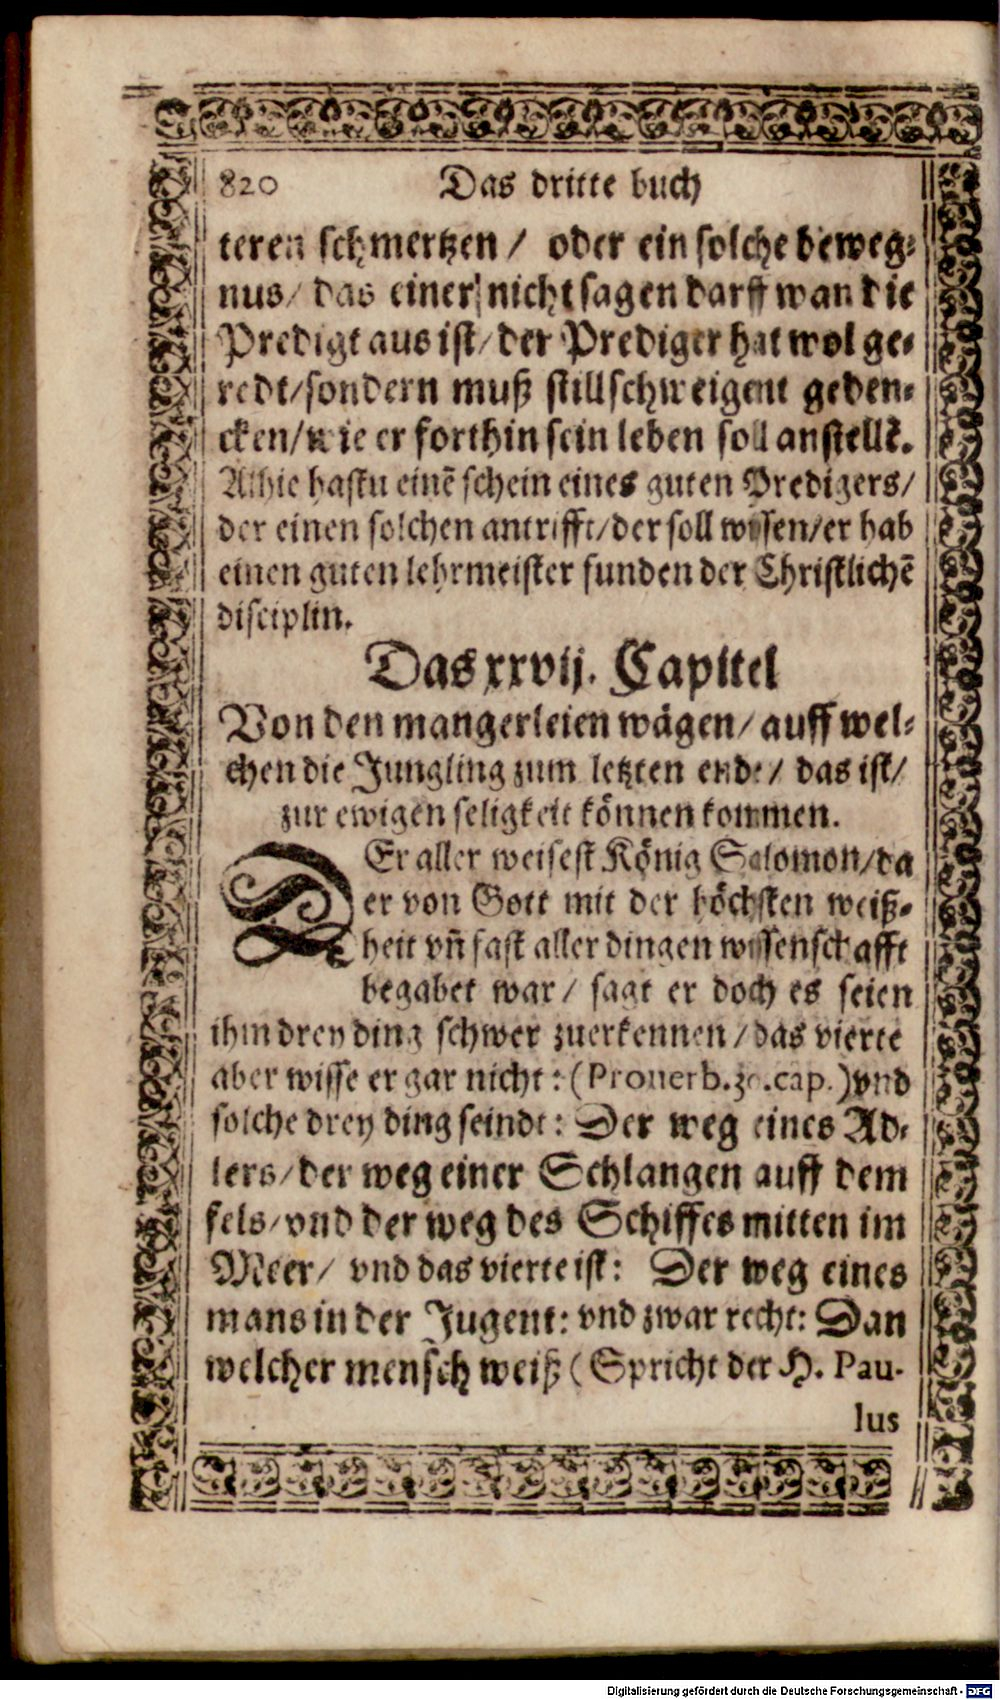 820 Das dritte buch
teren schmertzen / oder ein solche beweg⸗
nus / das einer nicht sagen darff wan die
Predigt aus ist / der Prediger hat wol ge⸗
redt / sondern muß stillschweigent geden⸗
cken / wie er forthin sein leben soll anstellẽ.
Alhie hastu einẽ schein eines guten Predigers /
der einen solchen antrifft / der soll wissen / er hab
einen guten lehrmeister funden der Christlichẽ
disciplin.
Das xxvij. Capitel
Von den mangerleien wägen / auff wel⸗
chen die Jungling zum letzten ende / das ist /
zur ewigen seligkeit können kommen.
DEr aller weisest König Salomon / da
er von Gott mit der höchsten weiß⸗
heit vñ fast aller dingen wissenschafft
begabet war / sagt er doch es seien
ihm drey ding schwer zuerkennen / das vierte
aber wisse er gar nicht : (Prouerb. 30. cap.) vnd
solche drey ding seindt : Der weg eines Ad⸗
lers / der weg einer Schlangen auff dem
fels / vnd der weg des Schiffes mitten im
Meer / vnd das vierte ist : Der weg eines
mans in der Jugent : vnd zwar recht : Dan
welcher mensch weiß ( Spricht der H. Pau-
lus
Digitalisierung gefördert durch die Deutsche Forschungsgemeinschaft - DFG